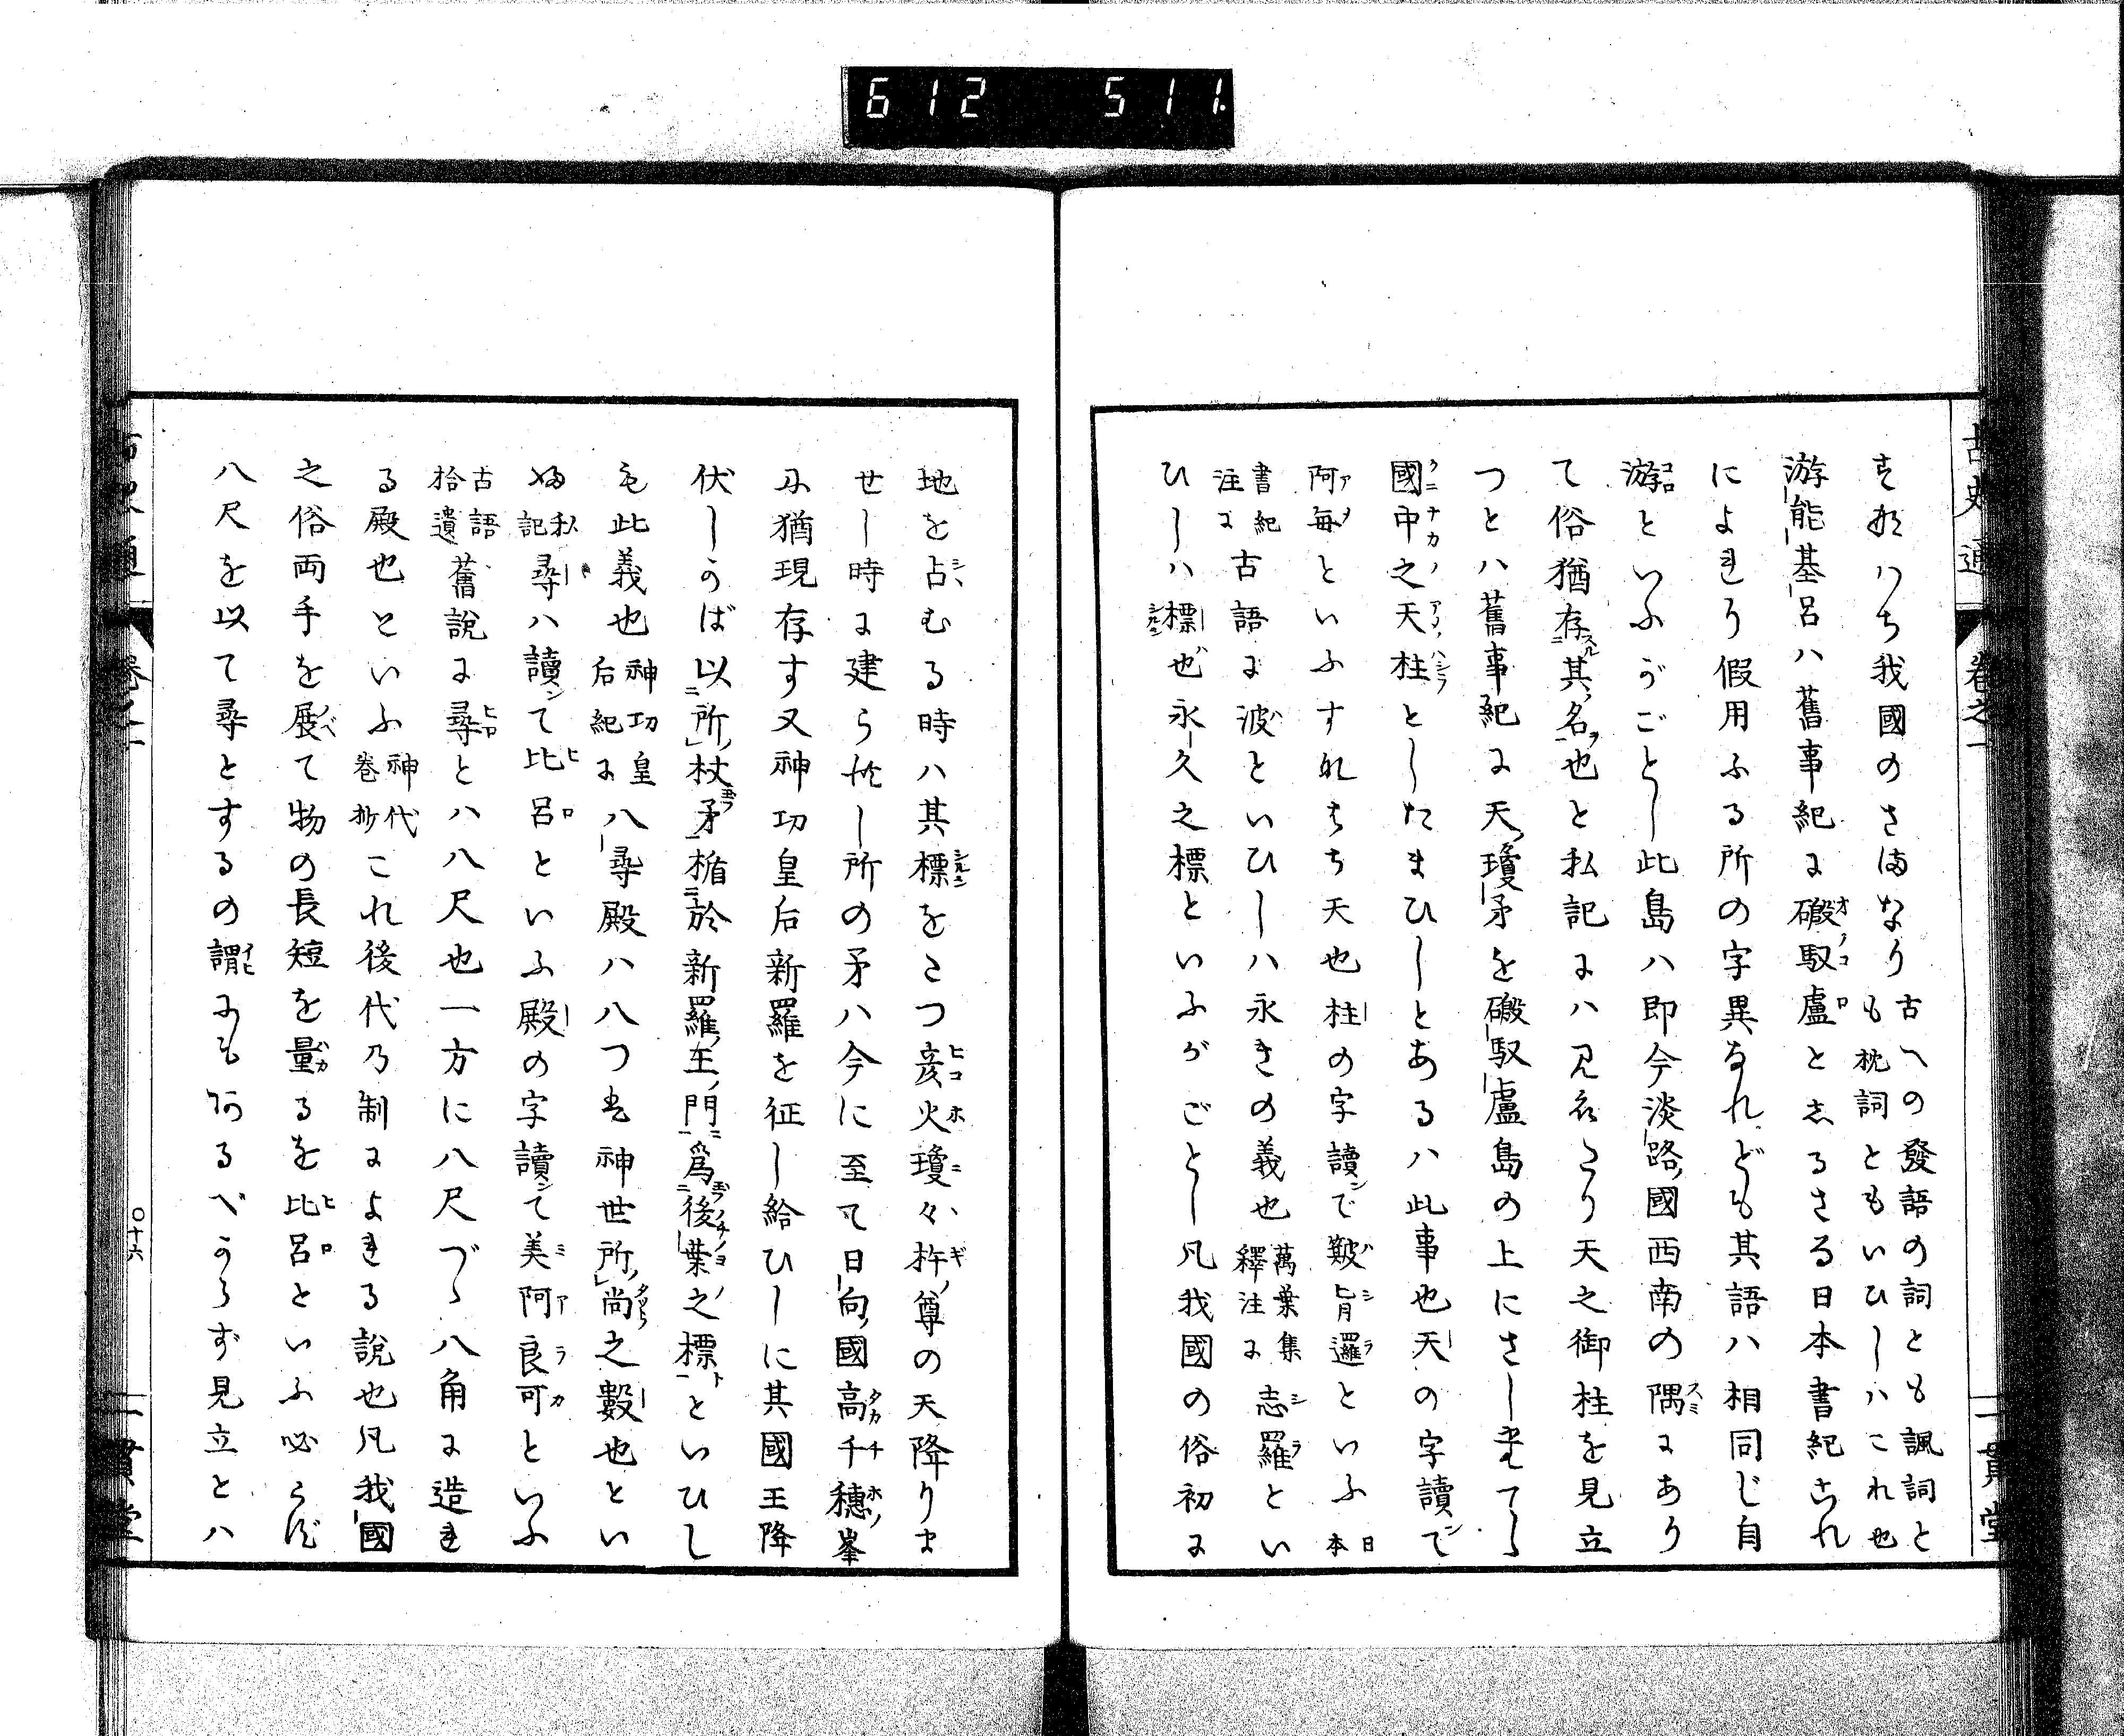 612 511
古史通 卷之一 一貫堂
すなハち我國のさまなり古への發語の詞とも諷詞と
も枕詞ともいひしハこれ也
游能基呂ハ舊事紀に磤馭盧としるさる日本書紀これ
によれり假用ふる所の字異なれども其語ハ相同じ自
游といふがごとし此島ハ即今淡路國西南の隅にあり
て俗猶存其名也と私記にハ見えたり天之御柱を見立
つとハ舊事紀に天瓊矛を磤馭盧島の上にさし立てゝ
國中之天柱としたまひしとあるハ此事也天の字讀で
阿毎といふすなハち天也柱の字讀で簸旨邏といふ日本
書紀注に古語に波といひしハ永きの義也萬葉集釋注に志羅とい
ひしハ標也永久之標といふがごとし凡我國の俗初に
地を占むる時ハ其標をたつ彦火瓊々杵尊の天降りま
せし時に建られし所の矛ハ今に至て日向國高千穗峯
に猶現存す又神功皇后新羅を征し給ひしに其國王降
伏しうば以所杖矛楯於新羅王門爲後葉之標といひし
も此義也神功皇后紀に八尋殿ハ八つは神世所尚之數也とい
ふ私記尋ハ讀て比呂といふ殿の字讀て美阿良可といふ
古語拾遺舊說に尋とハ八尺也一方に八尺づゝ八角に造れ
る殿也といふ神代卷抄これ後代乃制によれる說也凡我國
之俗両手を展て物の長短を量るを比呂といふ必らず
八尺を以て尋とするの謂にもあるべからず見立とハ
古史通 卷之一 〇十六 一貫堂